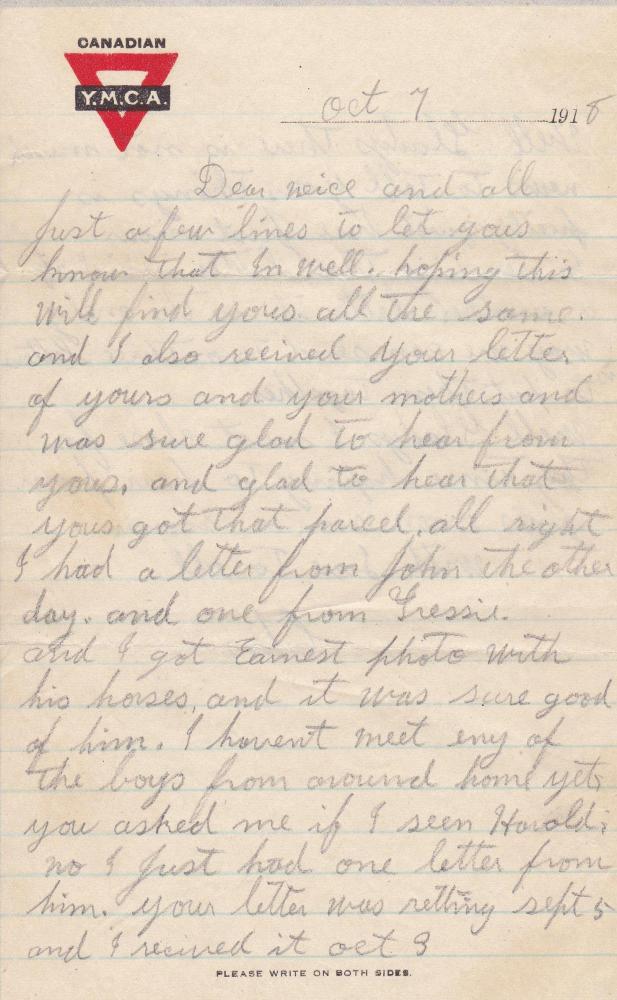 CANADIAN
Y.M.C.A.
Oct 7 1918
Dear neice and all
Just a few lines to let yous
know that Im well. hoping this
will find yous all the same.
and I also recived your letter
of yours and your mothers and
was sure glad to hear from
yous, and glad to hear that
yous got that parcel. all right
I had a letter from John the other
day. and one from Gressie.
and I got Earnest photo with
his horses, and it was sure good
of him. I havent meet eny of
the boys from around home yet,
you asked me if I seen Harold;
no I Just had one letter from
him. your letter was sept 5
and I recived it oct 3
PLEASE WRITE ON BOTH SIDES.